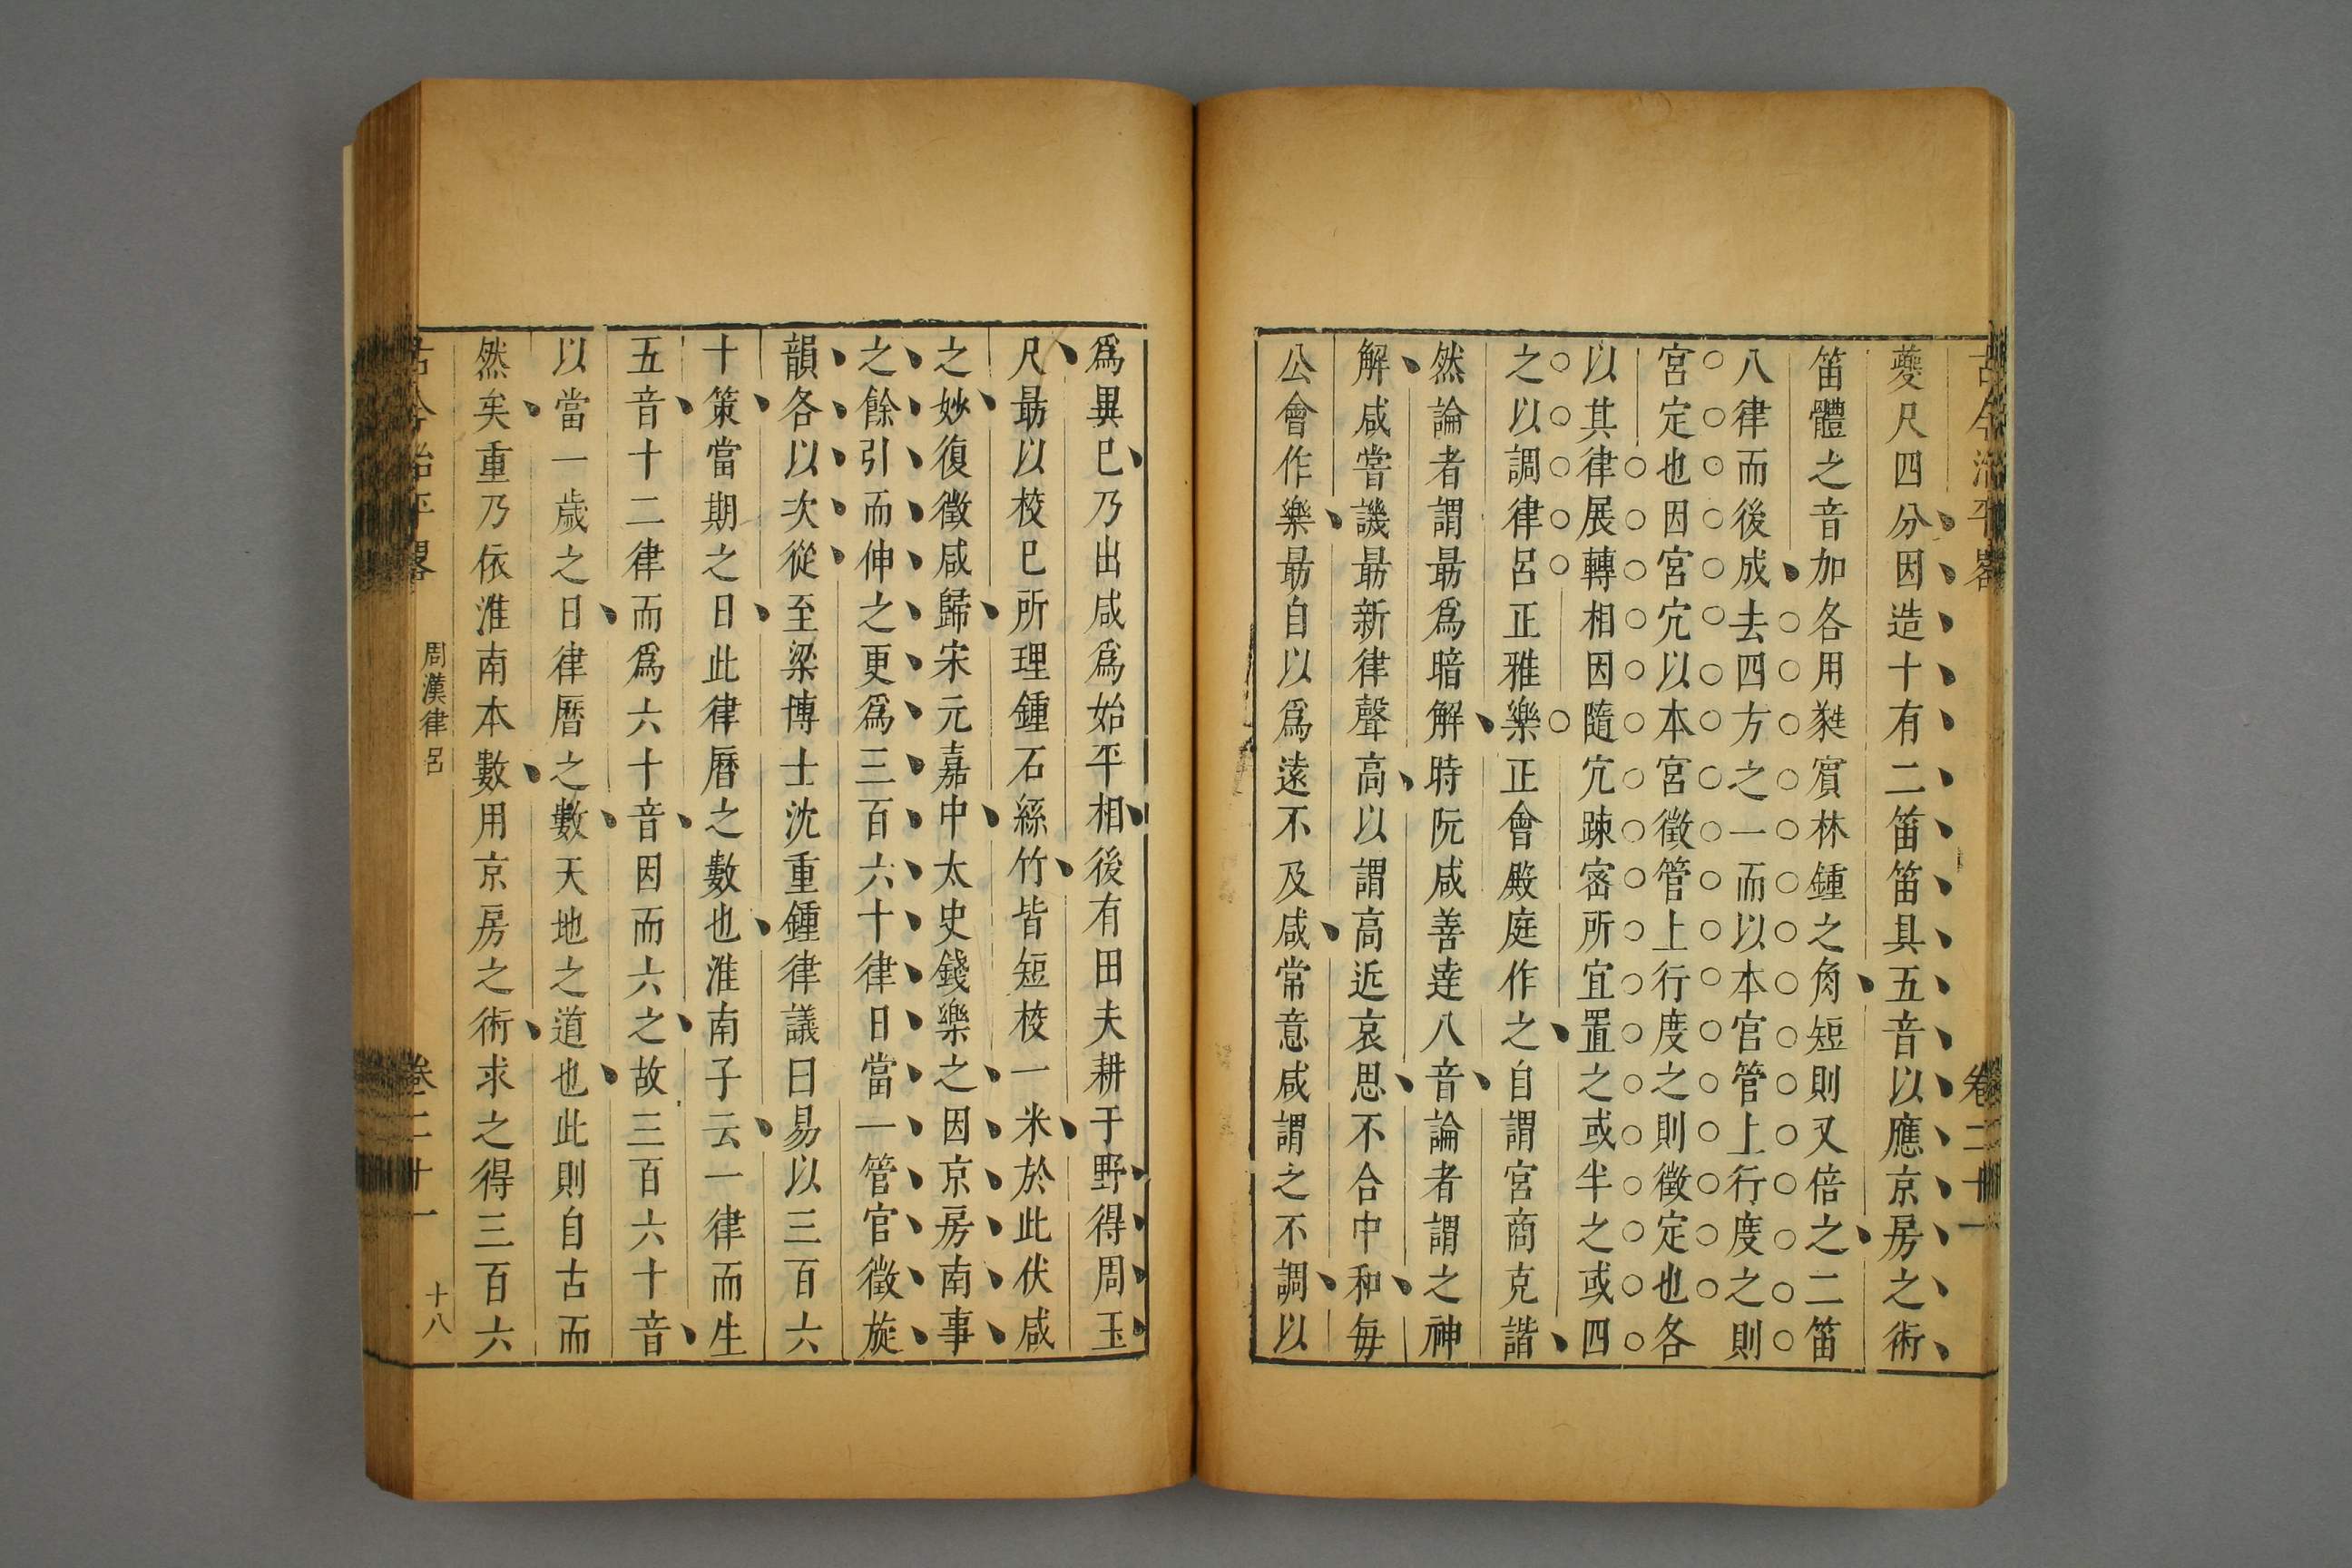 古今治平畧
卷二十一
夔尺四分因造十有二笛笛具五音以應京房之術
笛體之音加各用蕤賓林鍾之角短則又倍之二笛
八律而後成去四方之一而以本官管上行度之則
宮定也因宮宂以本宮徵管上行度之則徵定也各
以其律展轉相因隨宂踈宻所宜置之或半之或四
之以調律呂正雅樂正會殿庭作之自謂宮商克諧
然論者謂勗爲暗解時阮咸善達八音論者謂之神
解咸嘗譏勗新律聲高以謂高近哀思不合中和每
公會作樂勗自以爲遠不及咸常意咸謂之不調以
爲異已乃出咸爲始平相後有田夫耕于野得周玉
尺勗以校已所理鍾石絲竹皆短校一米於此伏咸
之妙復徵咸歸宋元嘉中太史錢樂之因京房南事
之餘引而伸之更爲三百六十律日當一管官徵旋
韻各以次從至梁博士沈重鍾律議曰易以三百六
十策當期之日此律曆之數也淮南子云一律而生
五音十二律而爲六十音因而六之故三百六十音
以當一歲之日律曆之數天地之道也此則自古而
然矣重乃依淮南本數用京房之術求之得三百六
古今治平畧
周漢律呂
卷二十一
十八